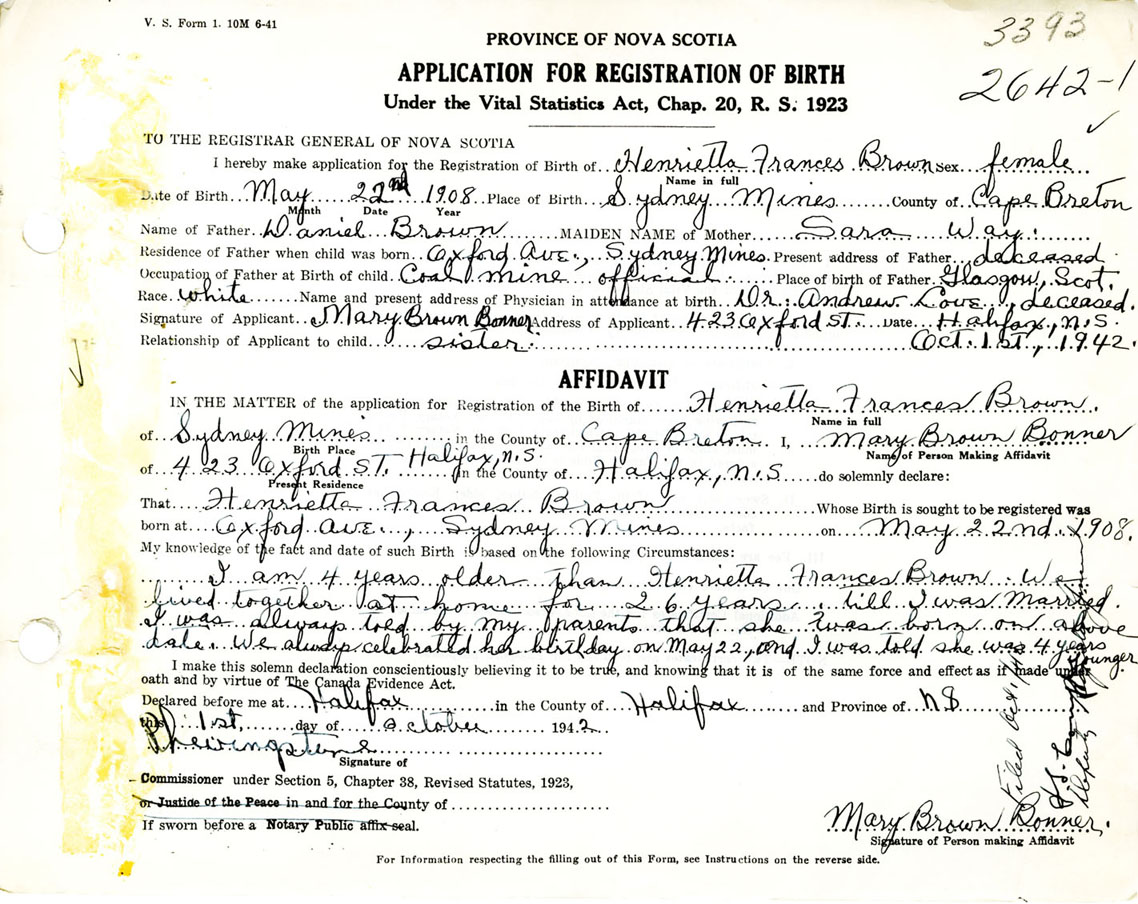 V. S. Form 1. 10M 6-41
3393
PROVINCE OF NOVA SCOTIA
APPLICATION FOR REGISTRATION OF BIRTH
2642-1
Under the Vital Statistics Act, Chap. 20, R. S. 1923
TO THE REGISTRAR GENERAL OF NOVA SCOTIA
I hereby make application for the Registration of Birth of Henrietta Frances Brown Sex female
Name in full
Date of Birth May 22nd 1908 Place of Birth Sydney Mines County of Cape Breton
Month Date Year
Name of Father Daniel Brown MAIDEN NAME of Mother Sara Way
Residence of Father when child was born Oxford Ave., Sydney Mines. Present address of Father deceased
Occupation of Father at Birth of child Coal mine official Place of birth of Father Glasgow, Scot.
Race white Name and present address of Physician in attendance at birth Dr. Andrew Love, deceased.
Signature of Applicant Mary Brown Bonner Address of Applicant 423 Oxford St. Date Halifax, N.S.
Relationship of Applicant to child sister Oct. 1st, 1942.
AFFIDAVIT
IN THE MATTER of the application for Registration of the Birth of Henrietta Frances Brown.
Name in full
of Sydney Mines in the County of Cape Breton. I, Mary Brown Bonner
Birth Place Name of Person Making Affidavit
of 423 Oxford St. Halifax, N.S. in the County of Halifax, N.S. do solemnly declare:
Present Residence
That Henrietta Frances Brown Whose Birth is sought to be registered was
born at Oxford Ave., Sydney Mines on May 22nd. 1908.
My knowledge of the fact and date of such Birth is based on the following Circumstances:
I am 4 years older than Henrietta Frances Brown We
lived together at home for 26 years till I was married.
I was always told by my parents that she was born on above
date. We always celebrated her birthday on May 22, and I was told she was 4 years
younger
I make this solemn declaration conscientiously believing it to be true, and knowing that it is of the same force and effect as if made under
oath and by virtue of The Canada Evidence Act.
Declared before me at Halifax in the County of Halifax and Province of N.S
this 1st, day of October 1942
Signature of
Commissioner under Section 5, Chapter 38, Revised Statutes, 1923,
or Justice of the Peace in and for the County of
If sworn before a Notary Public affix seal.
Filed Oct.
Deputy
Mary Brown Bonner.
Signature of Person making Affidavit
For Information respecting the filling out of this Form, see Instructions on the reverse side.